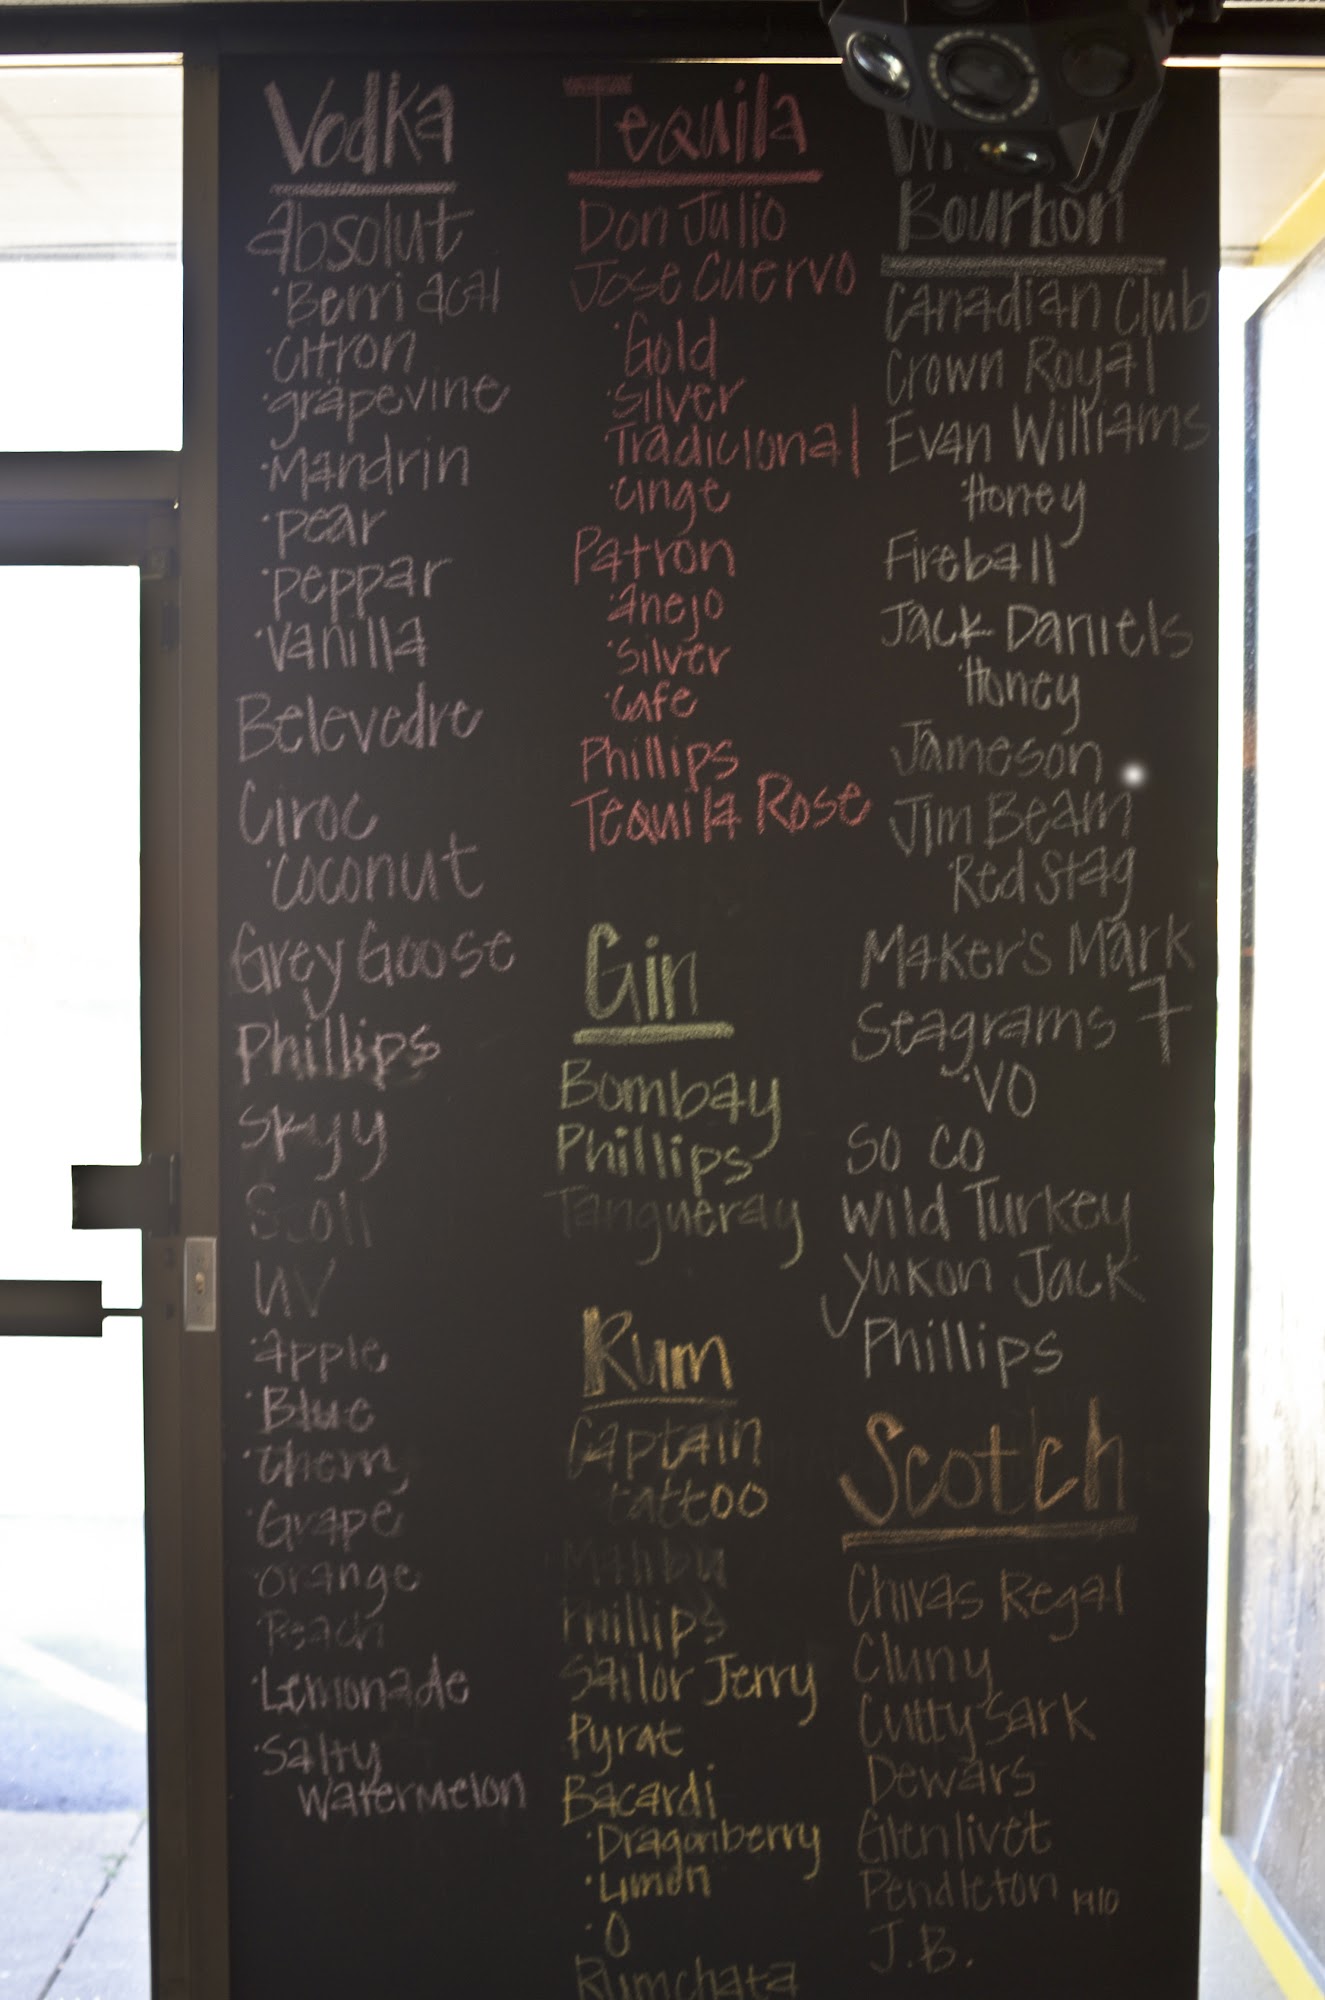 Vodka
absolut
·Berri acai
·citron
·grapevine
·Mandrin
·pear
·peppar
·Vanilla
Belevedre
Ciroc
·coconut
Grey Goose
Phillips
Skyy
Stoli
UV
·apple
·Blue
·Cherry
·Grape
·orange
·Peach
·Lemonade
·Salty
Watermelon
Tequila
Don Julio
Jose Cuervo
·Gold
·Silver
·Tradicional
·cinge
Patron
·anejo
·Silver
·cafe
Phillips
Tequila Rose
Gin
Bombay
Phillips
Tangueray
Rum
Captain
tattoo
Malibu
Phillips
Sailor Jerry
Pyrat
Bacardi
·Dragonberry
·Limon
·O
Rumchata
Bourbon
Canadian Club
Crown Royal
Evan Williams
·Honey
Fireball
Jack Daniels
·Honey
Jameson
Jim Beam
Red Stag
Maker's Mark
Seagrams 7
·VO
So Co
Wild Turkey
Yukon Jack
Phillips
Scotch
Chivas Regal
Cluny
Cutty Sark
Dewars
Glenlivet
Pendleton 1910
J.B.